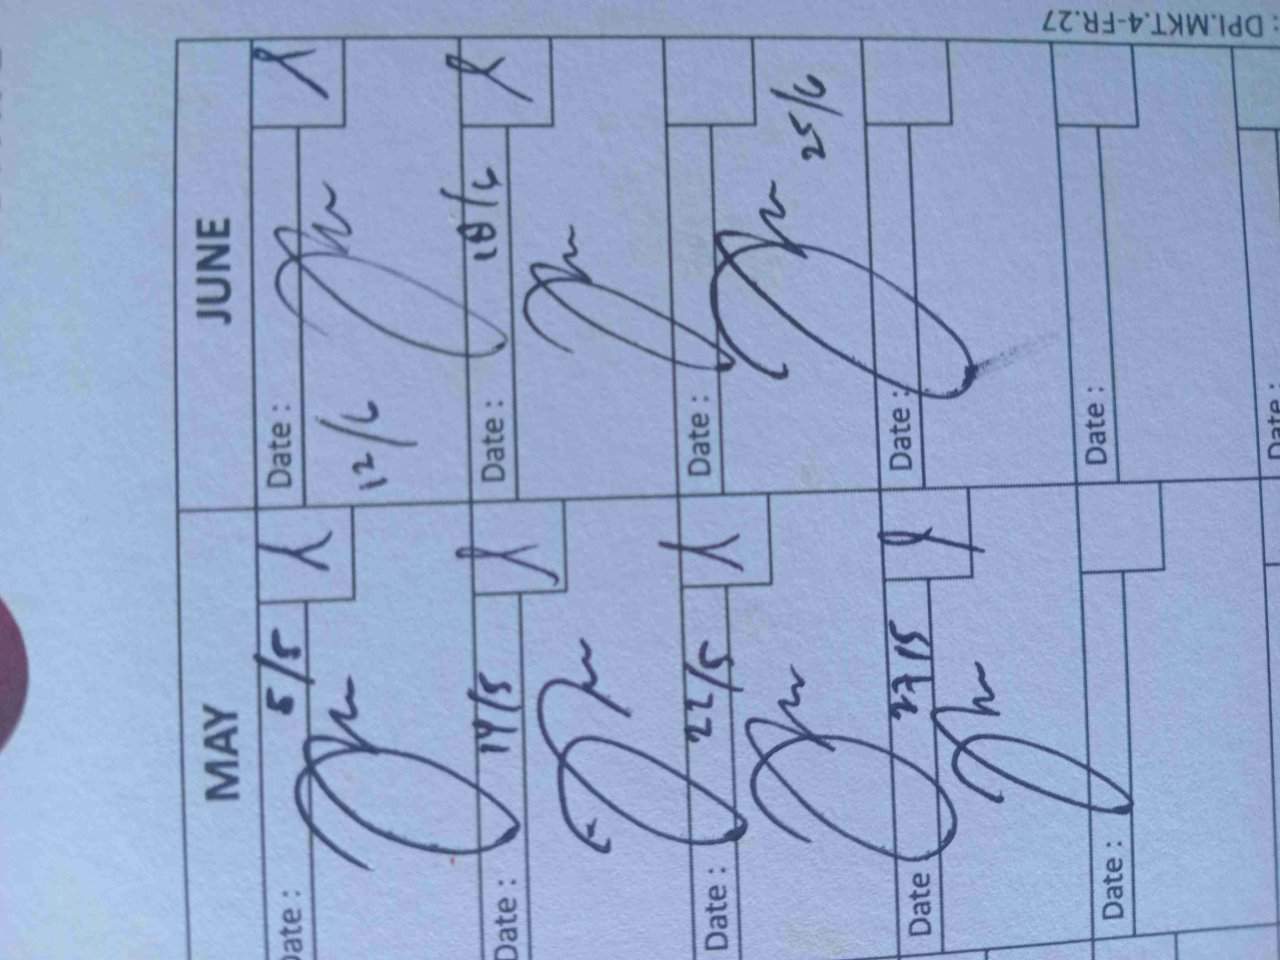 MAY
Date : 5/5
Date : 14/5
Date : 22/5
Date 27/5
Date :
JUNE
Date :
12/6
Date : 18/6
Date :
25/6
Date :
Date :
Date :
: DPI.MKT.4-FR.27